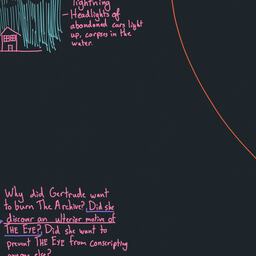 lightning
- Headlights of
abandoned cars light
up, corpses in the
water.
Why did Gertrude want
to burn The Archive? Did she
discover an ulterior motive of
THE EYE? Did she want to
prevent THE EYE from conscripting
anyone else?